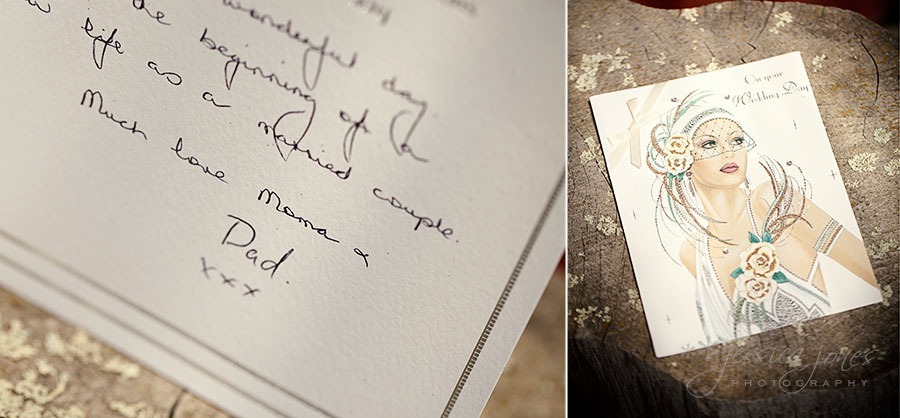 wonderful day
the beginning of a
life as a married couple.
Much love Moma x
Dad.
xxx
On your
Wedding Day
Jessica Jones
PHOTOGRAPHY